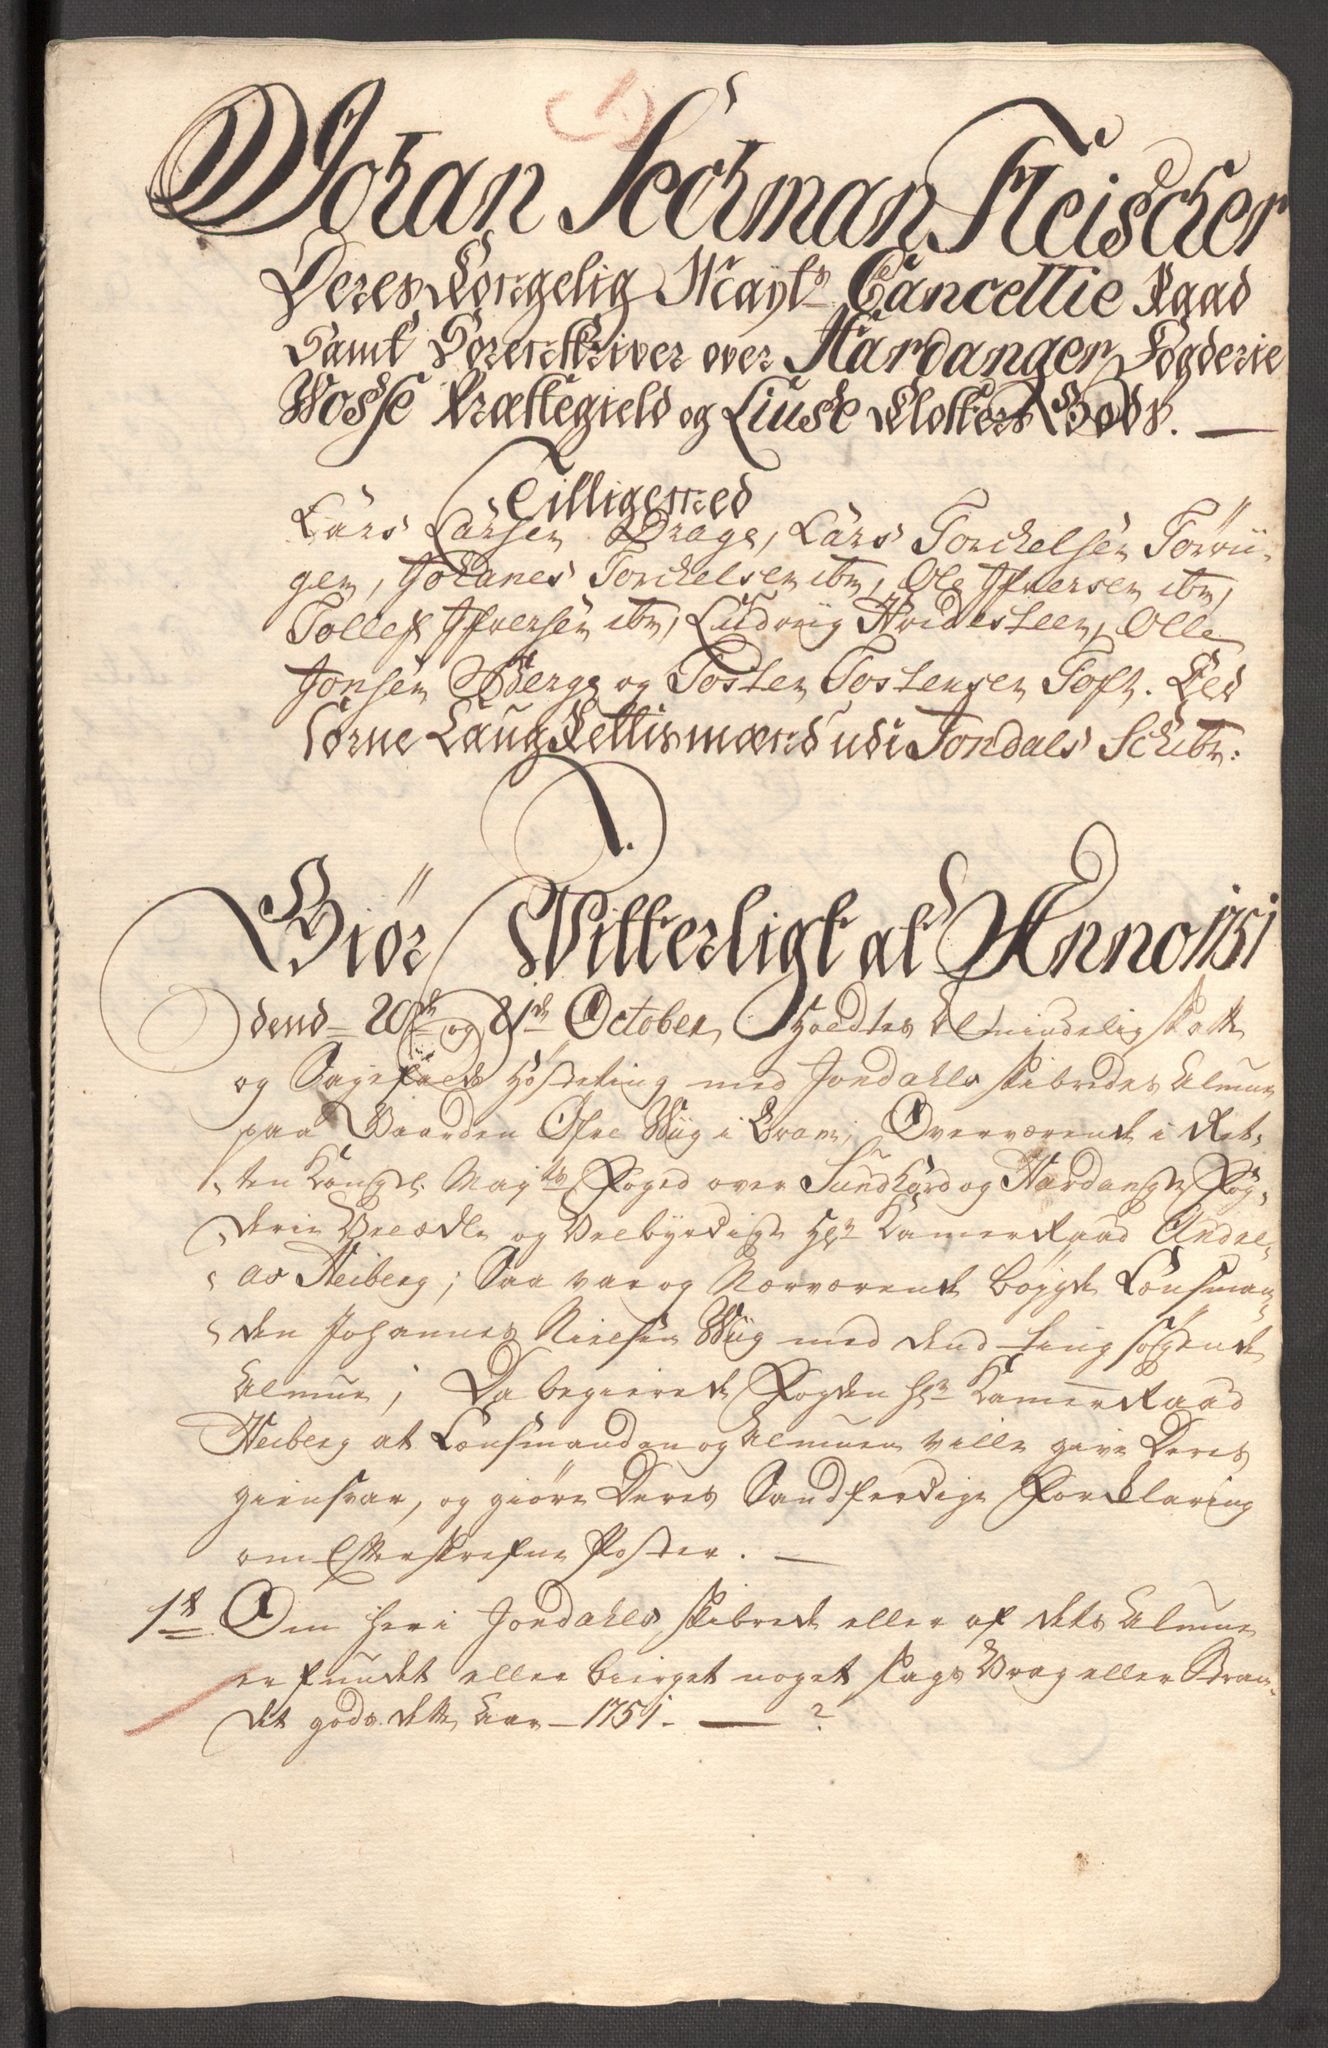 1
Johan Sechman Fleischer
Deres Kongelig Mayts Cancellie Raad
Samt Sorenskriver over Hardanger Fogderie
Vosse Præstegield og Liuse Closters Gods.
Tilligemed
Lars Larsen Drage, Lars Torckelsen Torvii-
gen, Johanes Torckelsen ibm, Ole Ifversen ibm,
Tollef Ifversen ibm, Ludvig Hvidesteen, Olle
Jonsen Berge og Tosten Tostensen Toft. Eed
sorne Laug Rettismænd udi Jondals Schibr:
Giør Vitterligt at Anno 1751
dend 20de og 21de October Holdtes Almindelig Skatte
og Sagefalds Høsteting med Jondahls Skibredes Almue
paa Gaarden Øfre Wiig i Oram; Overværende i Ret-
ten Kongel. Mayts Foged over Sundhord og Hardanger Fog-
derie Velædle og Velbyrdige Hr Kamer Raad Andre-
as Heiberg; Saa var og Nærværende bøygde Lensman-
den Johannes Nielsen Wiig med dend ting søgende
Almue; Da begierede Fogden hr Kamer Raad
Heiberg at Lensmanden og Almuen ville give Deres
giensvar, og giøre Deres Sandferdige Forklaring
om Efterskrefne Poster.
1t Om her i Jondahls Skibrede eller af dets Almue
er fundet eller bierget noget slags Vrag eller Stran-
det gods dette Aar 1751. ?